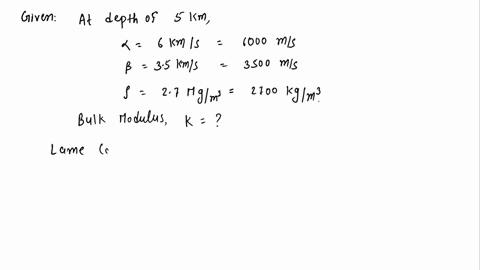 Given: At depth of 5 Km,
α = 6 Km/s = 6000 m/s
β = 3.5 Km/s = 3500 m/s
ρ = 2.7 Mg/m³ = 2700 kg/m³
Bulk Modulus, K = ?
Lame (